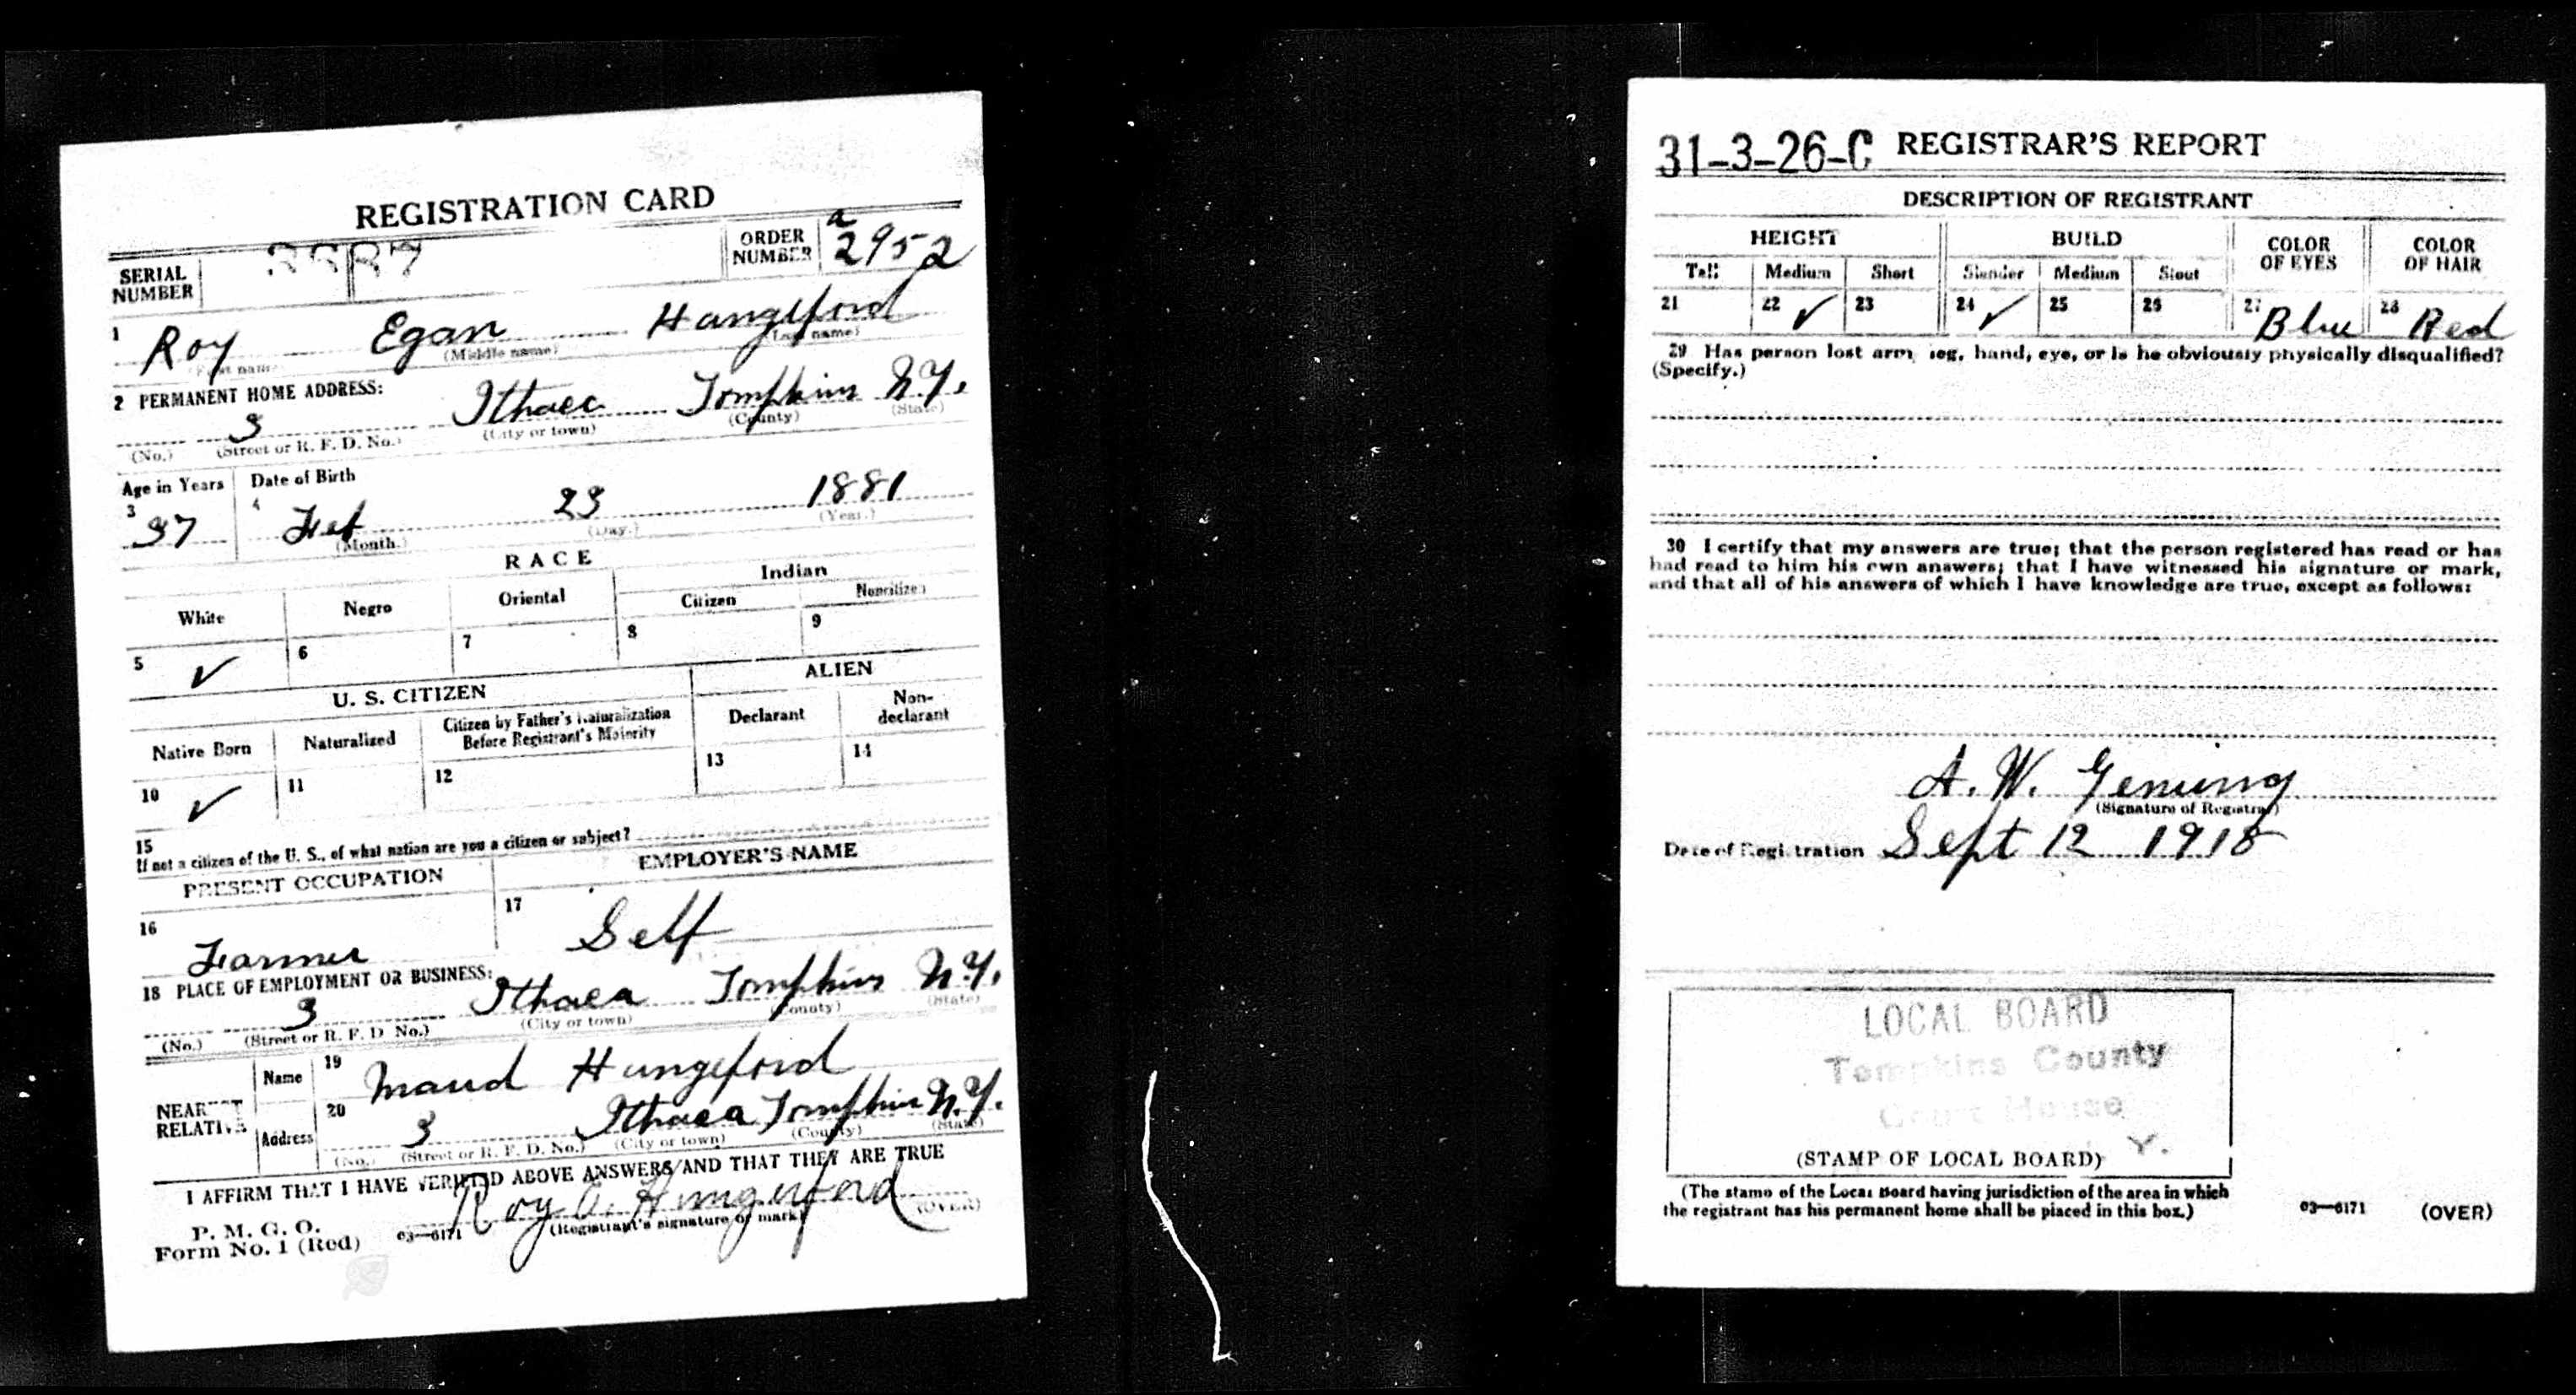 REGISTRATION CARD
SERIAL NUMBER
ORDER NUMBER a 2952
1 Roy Egan Hungeford
(First name) (Middle name) (Last name)
2 PERMANENT HOME ADDRESS:
3 Ithaca Tompkins N.Y.
(No.) (Street or R. F. D. No.) (City or town) (County) (State)
Age in Years Date of Birth
3 37 4 Feb 23 1881
(Month.) (Day.) (Year.)
RACE
White Negro Oriental Indian
Citizen Noncitizen
5 ✓ 6 7 8 9
U. S. CITIZEN ALIEN
Native Born Naturalized Citizen by Father's Naturalization Before Registrant's Majority Declarant Non-declarant
10 ✓ 11 12 13 14
15
If not a citizen of the U. S., of what nation are you a citizen or subject?
PRESENT OCCUPATION EMPLOYER'S NAME
16 Farmer 17 Self
18 PLACE OF EMPLOYMENT OR BUSINESS:
3 Ithaca Tompkins N.Y.
(No.) (Street or R. F. D. No.) (City or town) (County) (State)
NEAREST RELATIVE
Name 19 Maud Hungeford
Address 20 3 Ithaca Tompkins N.Y.
(No.) (Street or R. F. D. No.) (City or town) (County) (State)
I AFFIRM THAT I HAVE VERIFIED ABOVE ANSWERS AND THAT THEY ARE TRUE
P. M. G. O.
Form No. 1 (Red) 03—6171 Roy Hungerford
(Registrant's signature or mark) (OVER)
31-3-26-C REGISTRAR'S REPORT
DESCRIPTION OF REGISTRANT
HEIGHT BUILD COLOR OF EYES COLOR OF HAIR
Tall Medium Short Slender Medium Stout
21 22 ✓ 23 24 ✓ 25 26 27 Blue 28 Red
29 Has person lost arm, leg, hand, eye, or is he obviously physically disqualified?
(Specify.)
30 I certify that my answers are true; that the person registered has read or has
had read to him his own answers; that I have witnessed his signature or mark,
and that all of his answers of which I have knowledge are true, except as follows:
A. W. Genung
(Signature of Registrar)
Date of Registration Sept 12 1918
LOCAL BOARD
Tompkins County
Court House
Y.
(STAMP OF LOCAL BOARD)
(The stamp of the Local Board having jurisdiction of the area in which
the registrant has his permanent home shall be placed in this box.)
03—6171 (OVER)